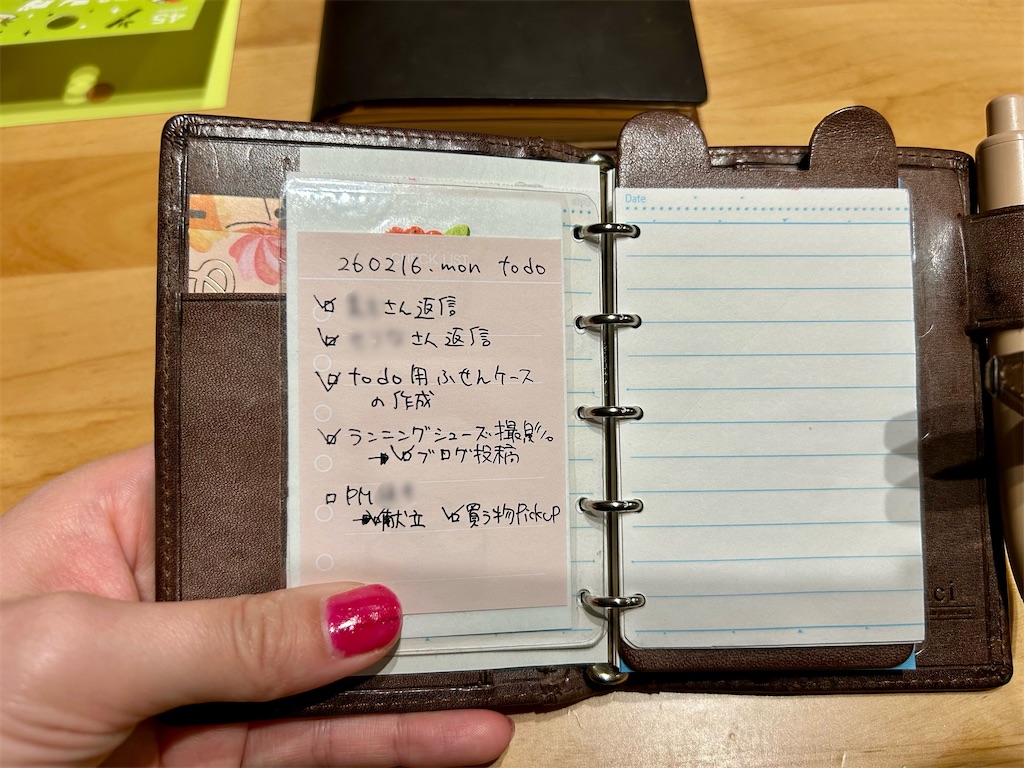 45
260216.mon todo
CK LIST
さん返信
さん返信
todo用ふせんケース
の作成
ランニングシューズ撮影
→ブログ投稿
PM
→献立 買う物pickup
Date
ci